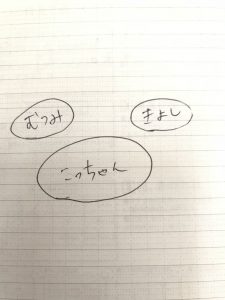 むつみ
きよし
こっちゃん